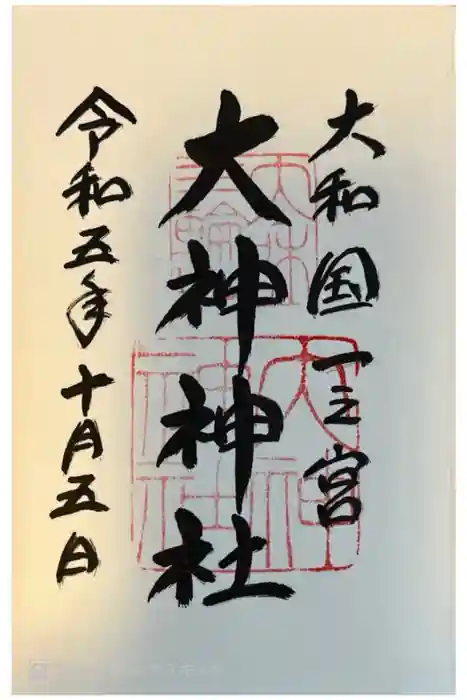 大和国一之宮
大神神社
令和五年十月五日